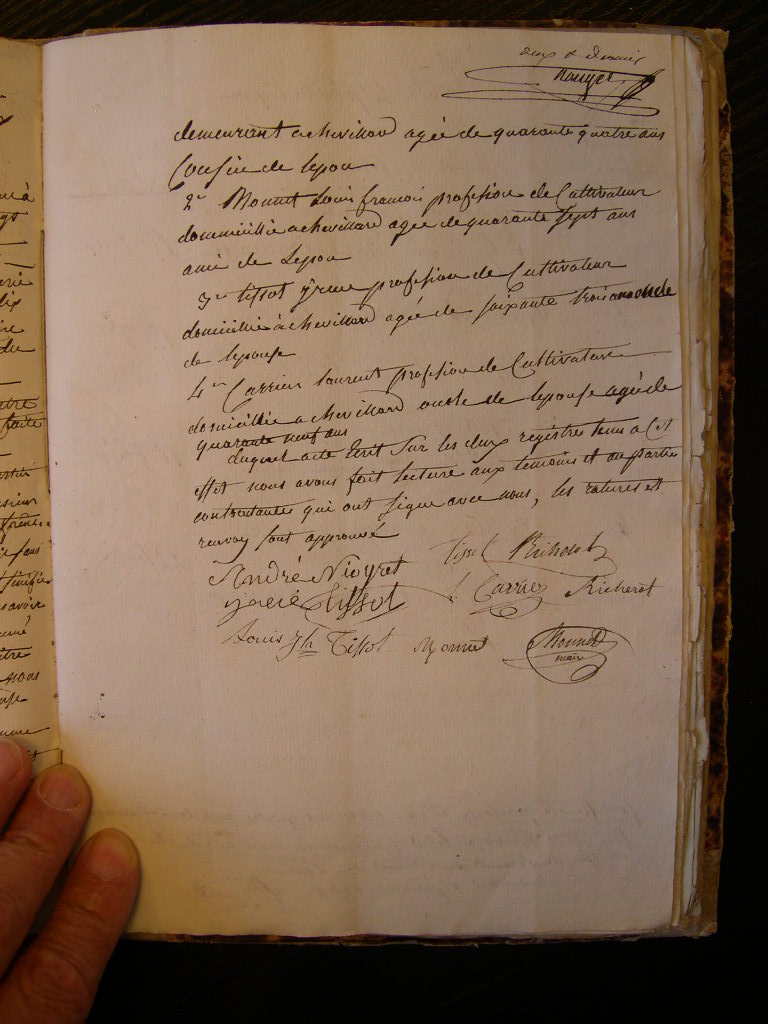 deux et dernier
Rouyer
demeurant a chevillard agée de quarante quatre ans
Cousin de lepou
2e Monnet Louis francois profession de Cultivateur
dommicillié a chevillard agée de quarante sept ans
ami de Lepou
3e tissot profession de Cultivateur
domicillié à chevillard agée de soixante trois ans oncle
de lepouse
4e Carrier laurent profession de Cultivateur
domicillié a chevillard oncle de lepouse agée de
quarante neuf ans
duquel acte Ecrit Sur les deux registres tenus a Cet
effet nous avons fait lecture aux temoins et au partie
contractantes qui ont signe avec nous, les ratures et
renvoy sont approuvé
André Niogret tissot Richerot
Tissot Carrier Richerot
Louis Jh Tissot Monnet Monnet
maire